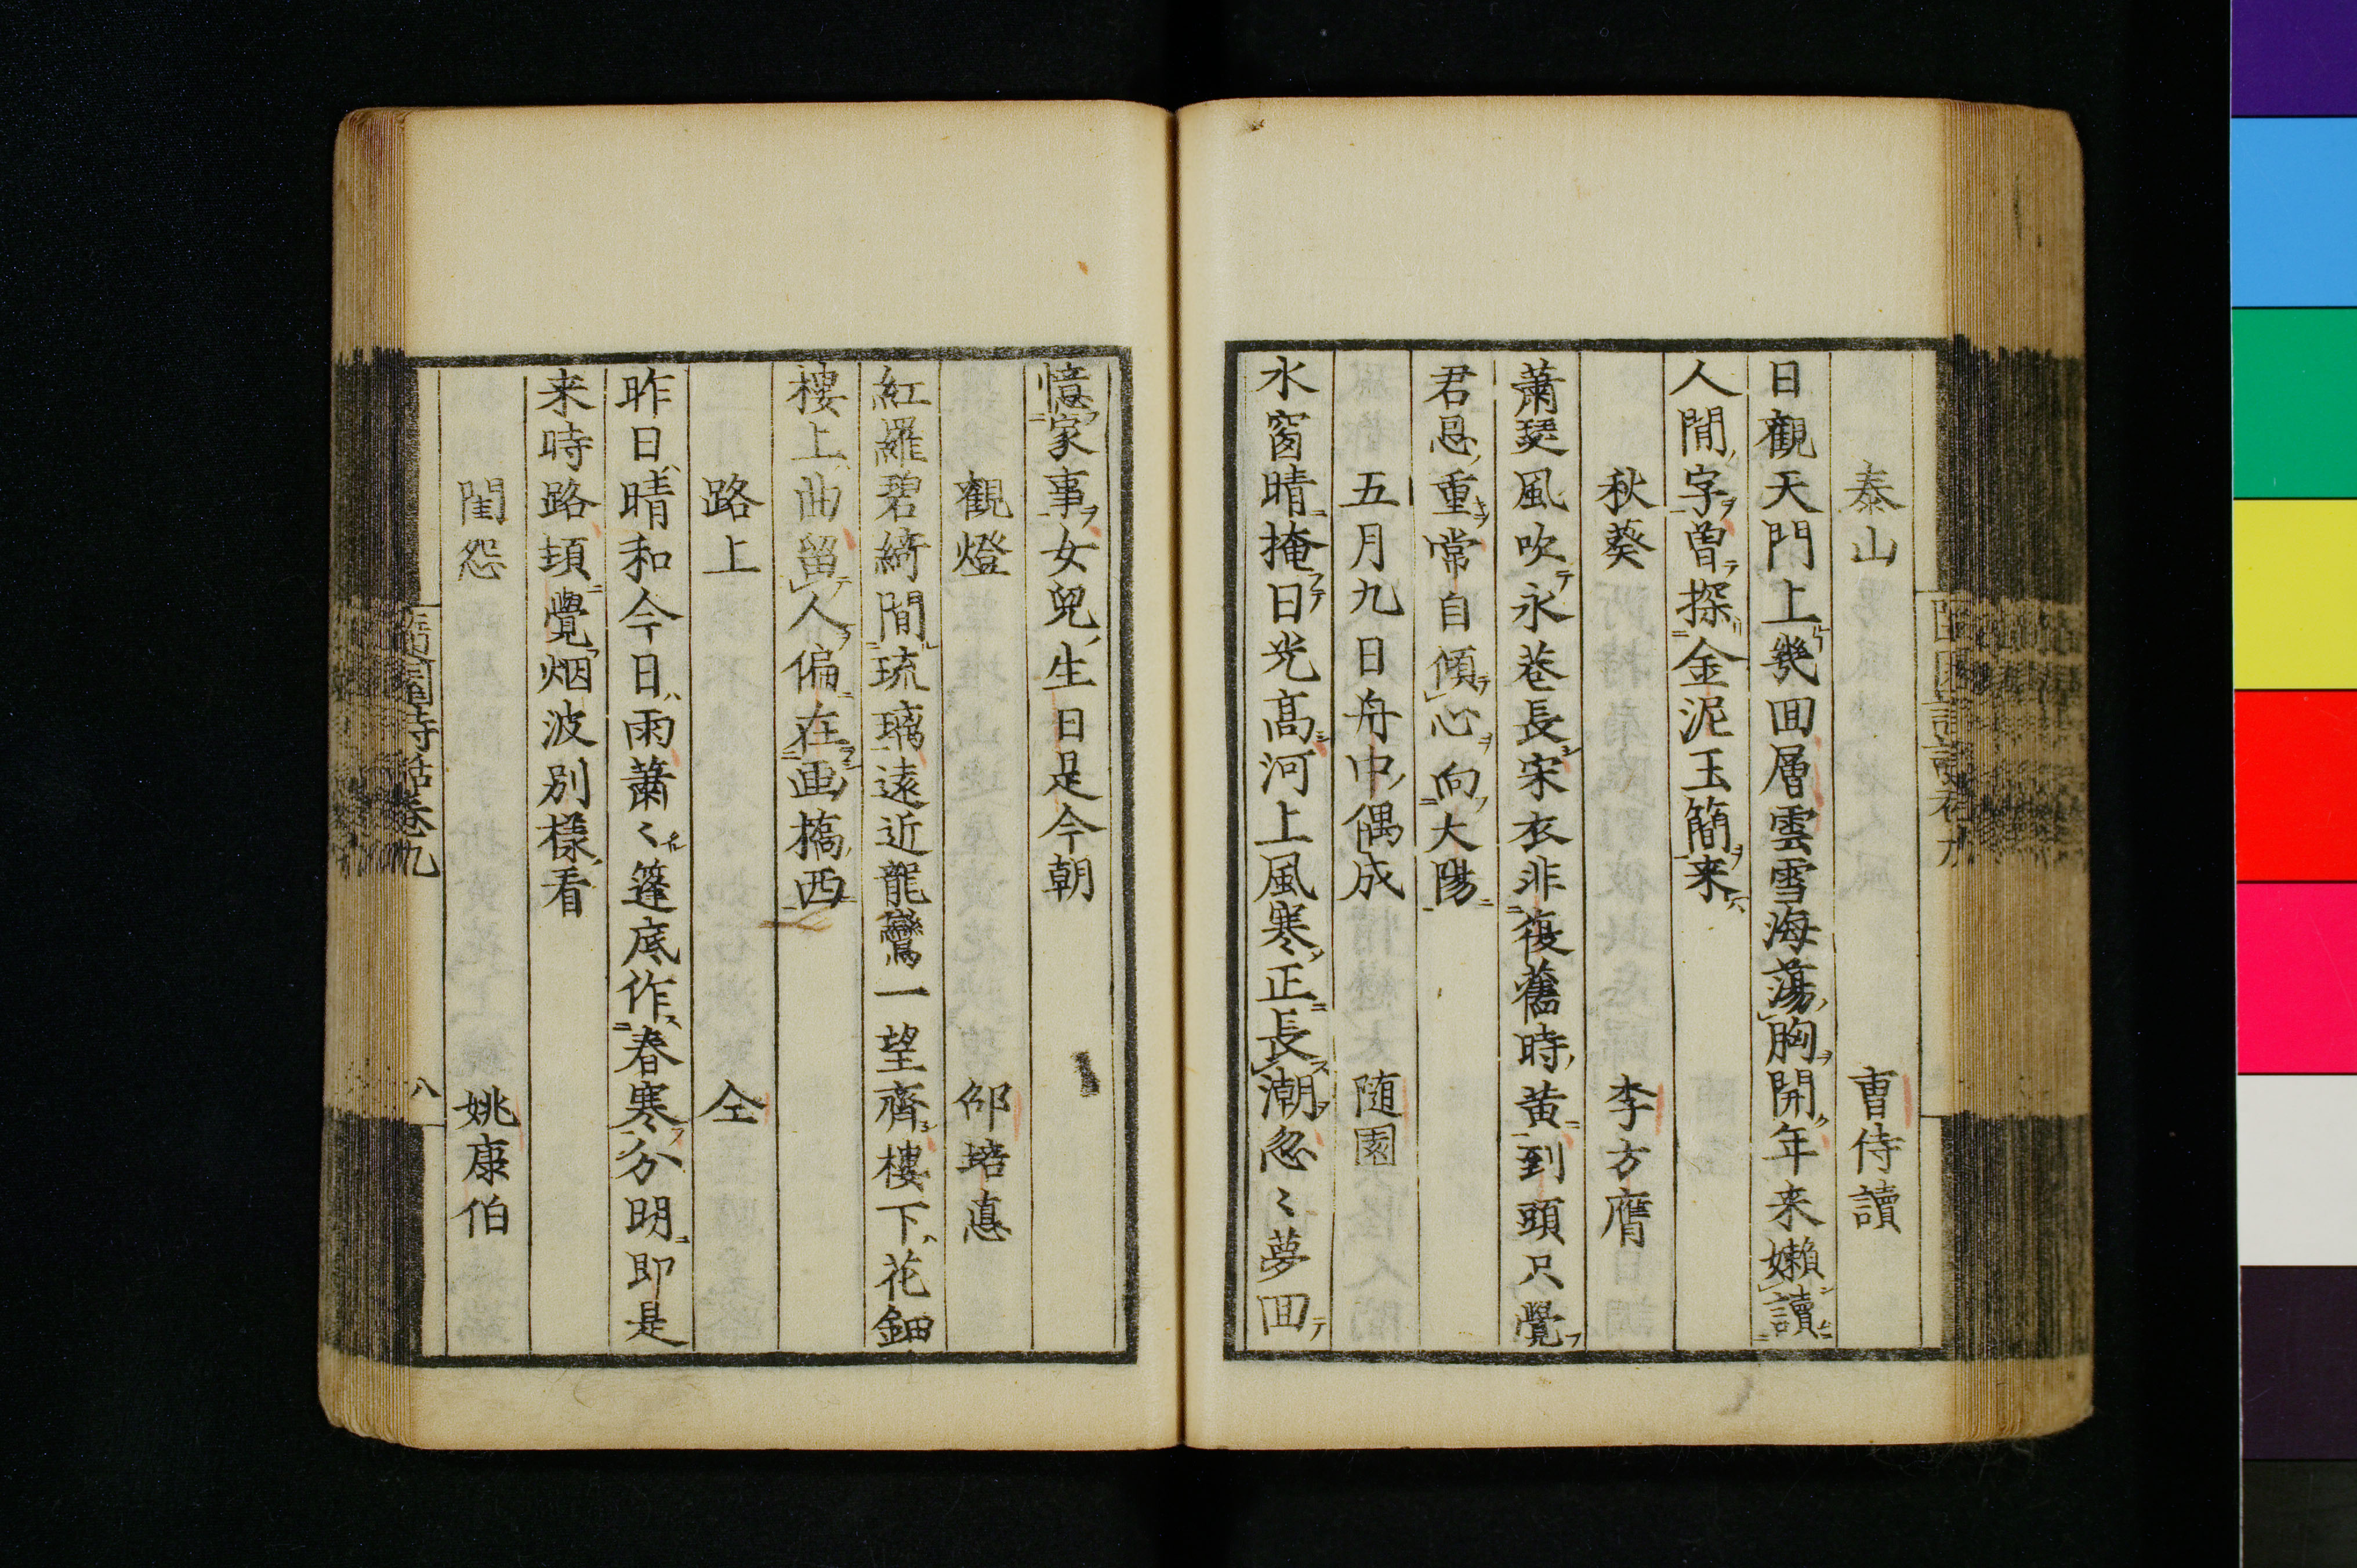 泰山 曺侍讀
日觀天門上幾囬層雲雪海蕩胸開年来嬾讀
人閒字曽探金泥玉簡来
秋葵 李方膺
蕭瑟風吹永巷長宋衣非復舊時黄到頭只覺
君恩重常自傾心向大陽
五月九日舟中偶成 随園
水窗晴掩日光高河上風寒正長潮忽〻夢囬
憶家事女兒生日是今朝
觀燈 邵培惪
紅羅碧綺閒琉璃遠近龍鸞一望齊樓下花鈿
樓上曲留人偏在画橋西
路上 仝
昨日晴和今日雨蕭〻篷底作春寒分明即是
来時路頓覺烟波別樣看
閨怨 姚康伯
隨園詩話卷九
八